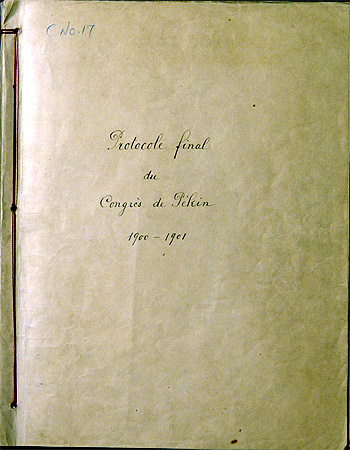 C No. 17
Protocole final
du
Congrès de Pékin
1900 - 1901